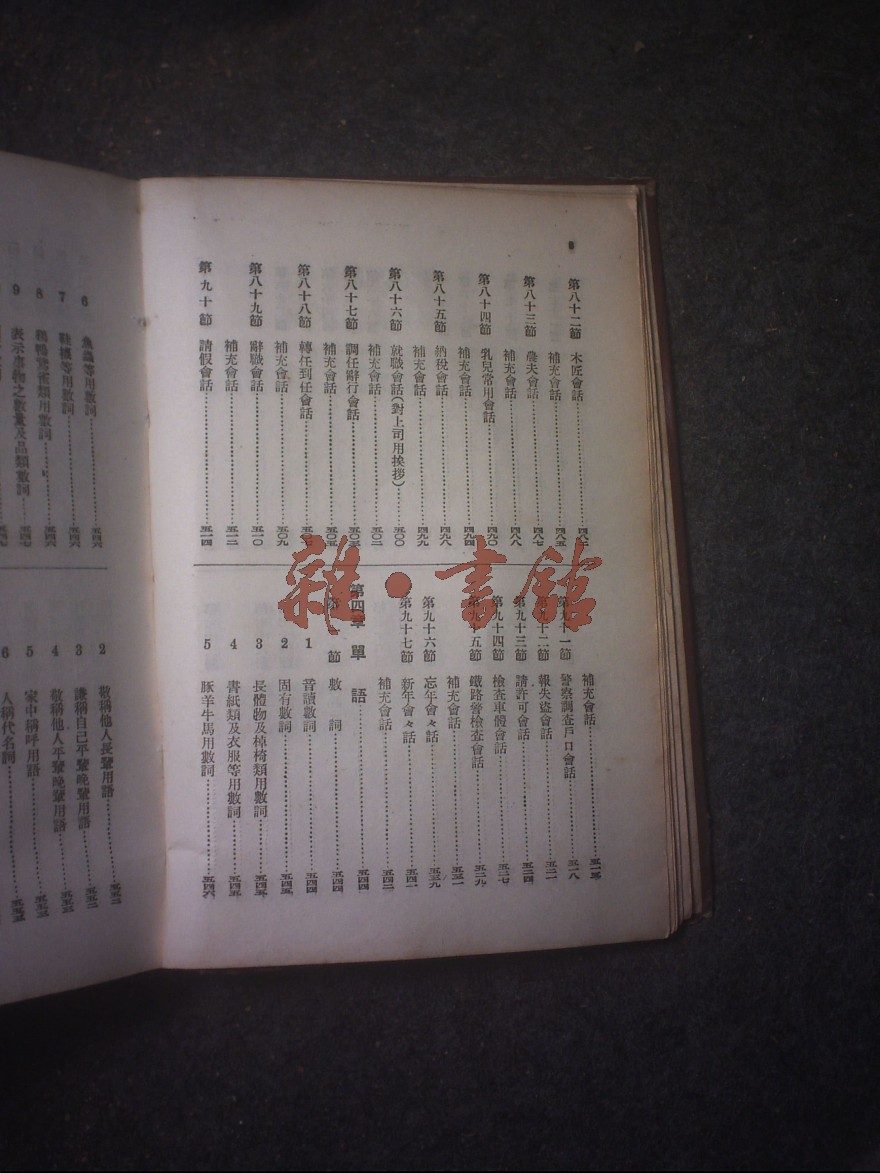 第八十二節 木匠會話
補充會話
第八十三節 農夫會話 四八七
補充會話 四八八
第八十四節 乳兒常用會話 四九〇
補充會話 四九四
第八十五節 納稅會話 四九八
補充會話 四九九
第八十六節 就職會話(對上司用挨拶) 五〇〇
補充會話 五〇二
第八十七節 調任辭行會話
補充會話 五〇五
第八十八節 轉任到任會話 五〇七
補充會話 五〇九
第八十九節 辭職會話 五一〇
補充會話 五一二
第九十節 請假會話 五一四
補充會話
第九十一節 警察調查戶口會話 五一八
第九十二節 報失盜會話 五二一
第九十三節 請許可會話 五二四
第九十四節 檢查車體會話 五二七
第九十五節 鐵路警檢查會話 五二九
補充會話 五三一
第九十六節 忘年會々話 五三九
第九十七節 新年會々話 五四一
補充會話 五四二
第四章 單語 五四四
第 節 數詞 五四四
1 音讀數詞 五四四
2 固有數詞 五四五
3 長體物及棹椅類用數詞 五四五
4 書紙類及衣服等用數詞 五四五
5 豚羊牛馬用數詞 五四六
6 魚蟲等用數詞 五四六
7 鞋襪等用數詞 五四六
8 鷄鴨等雀類用數詞 五四六
9 表示事物之數量及品類數詞 五四七
2 敬稱他人長輩用語
3 謙稱自己平輩晚輩用語
4 敬稱他人平輩晚輩用語
5 家中稱呼用語
6 人稱代名詞
雜·書館